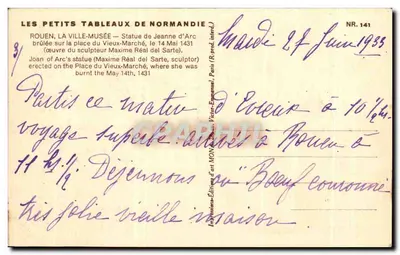 LES PETITS TABLEAUX DE NORMANDIE
NR. 141
ROUEN, LA VILLE-MUSÉE — Statue de Jeanne d'Arc
brûlée sur la place du Vieux-Marché, le 14 Mai 1431
(œuvre du sculpteur Maxime Réal del Sarte)
Joan of Arc's statue (Maxime Réal del Sarte, sculptor)
erected on the Place du Vieux-Marché, where she was
burnt the May 14th, 1431
3/
Mardi 27 Juin 1933
Partis ce matin d'Evreux à 10 h 1/2
voyage superbe arrivés à Rouen à
11 hs 1/2 Déjeunons au "Boeuf couronné
très jolie vieille maison